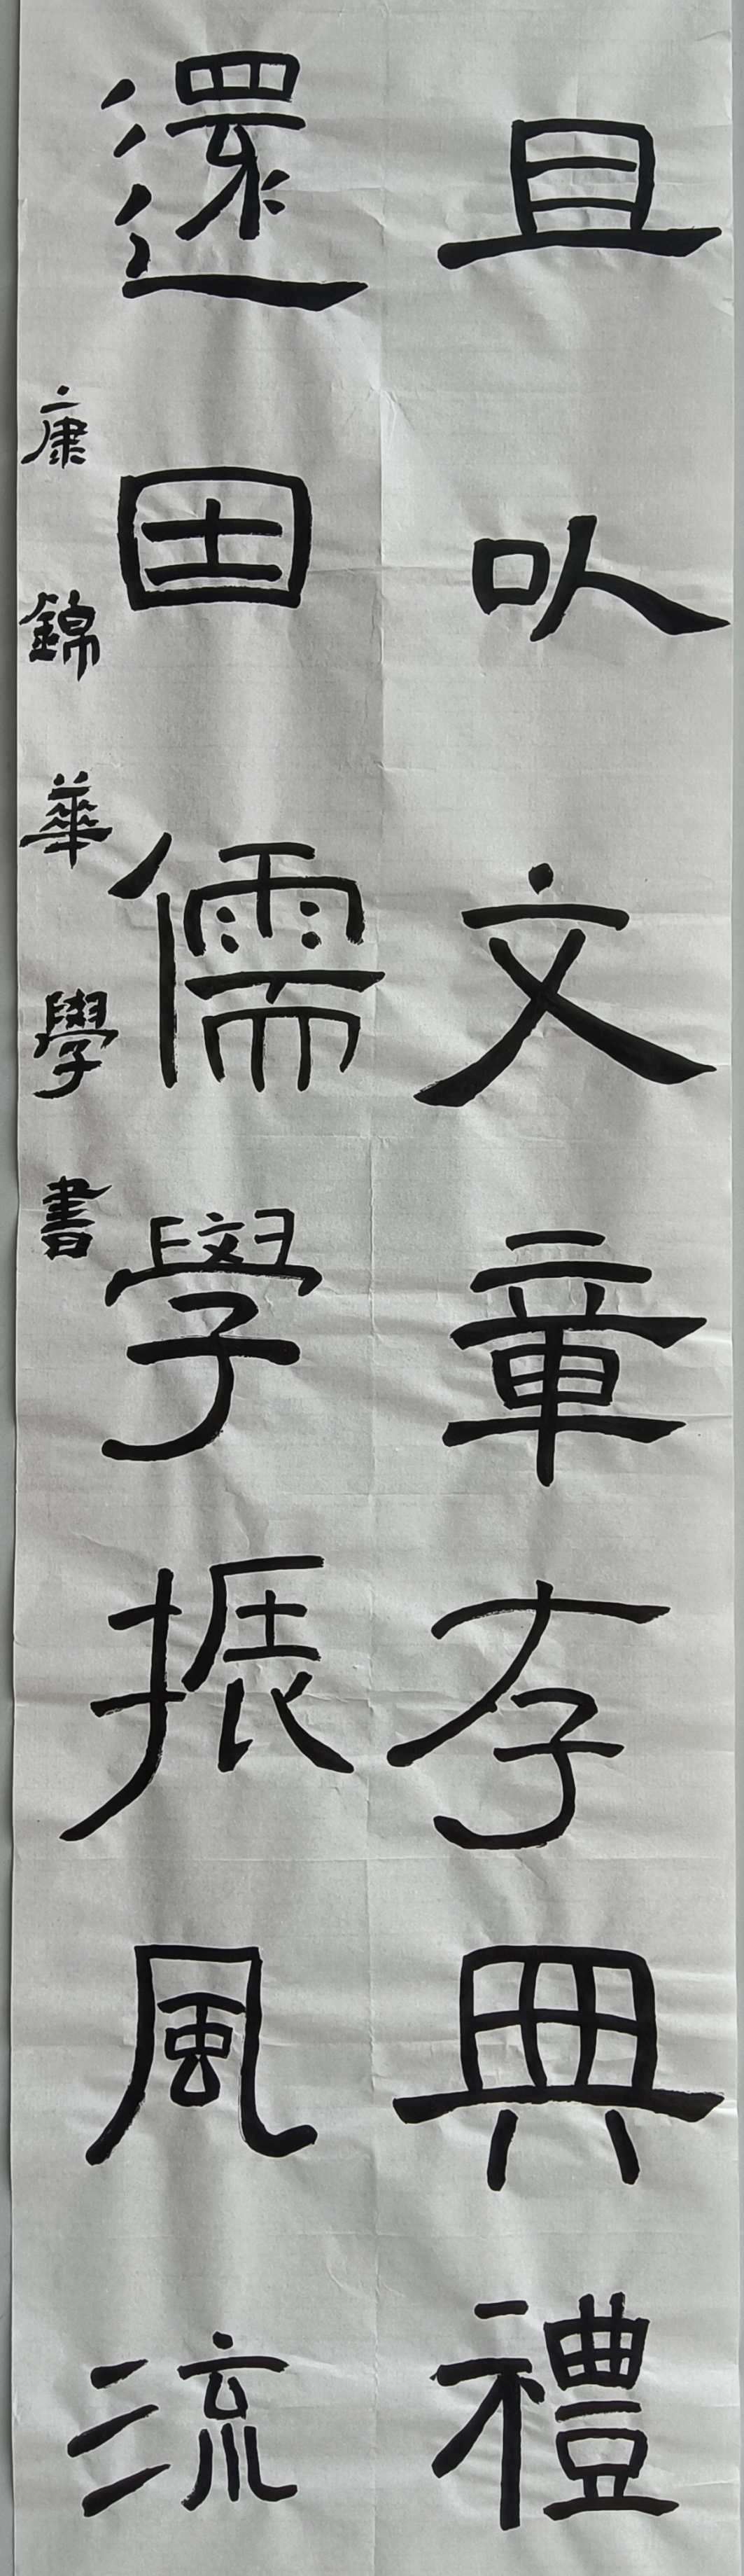 且以文章存典禮
還因儒學振風流
康錦華學書